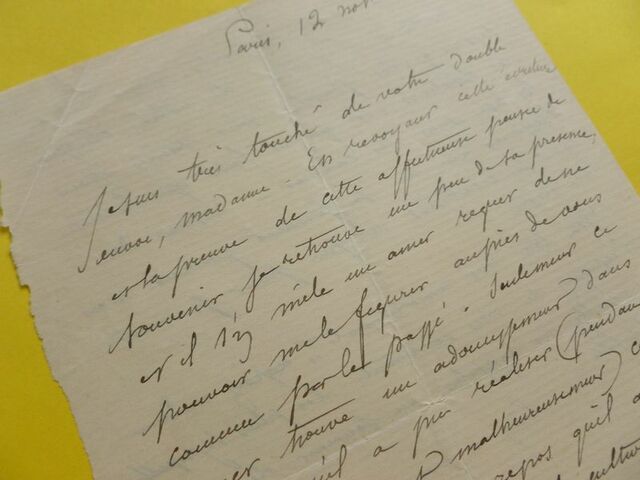 Paris, 12 nov
Je suis très touché de votre double
envoi, madame. En revoyant cette écriture
et la preuve de cette affectueuse pensée de
souvenir je retrouve un peu de sa présence,
et il s'y mêle un amer regret de ne
pouvoir me le figurer auprès de vous
comme par le passé. Seulement ce
trouve un adoucissement dans
qu'il a pu réaliser (pendant
malheureusement)
repos qu'il a